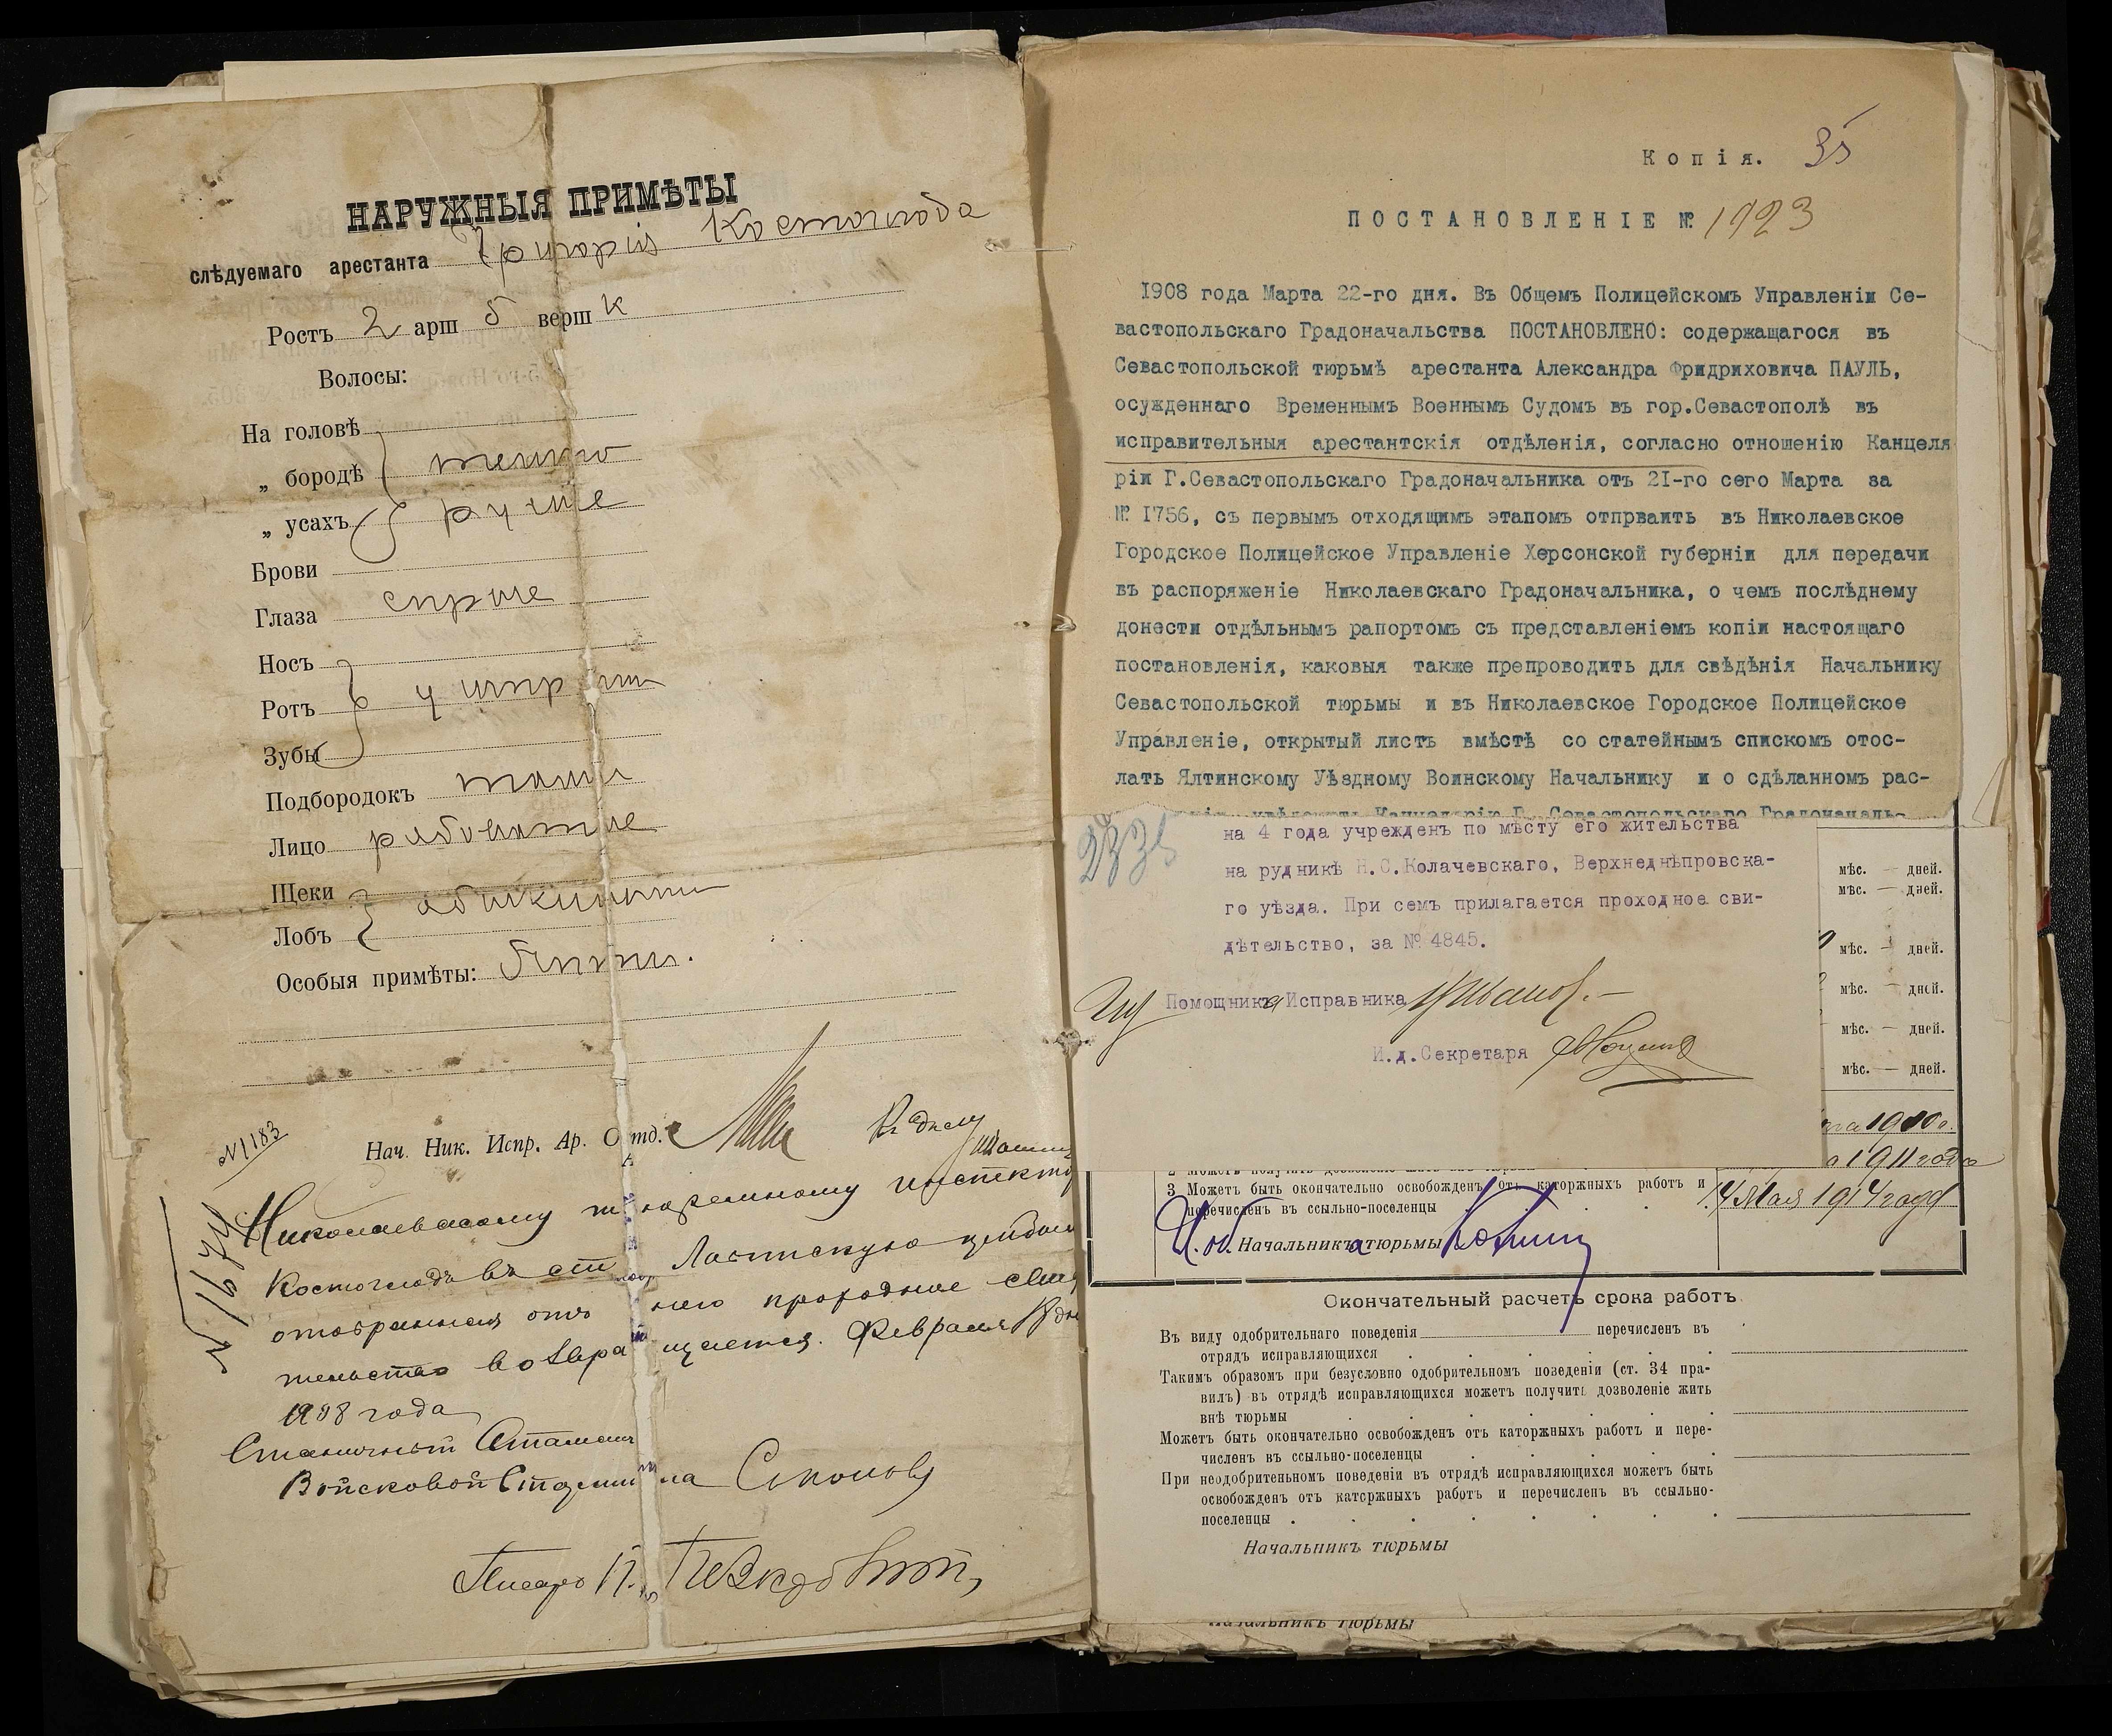 НАРУЖНЫЯ ПРИМѢТЫ
слѣдуемаго арестанта Григорія Костоглода
Ростъ 2 арш 5 верш к
Волосы:
На головѣ
„ бородѣ темно
„ усахъ русые
Брови
Глаза сѣрые
Носъ
Ротъ умѣрен
Зубы
Подбородокъ
Лицо рябоватое
Щеки
Лобъ
Особыя примѣты:
№1183
Нач. Ник. Испр. Ар. Отд.
№ 1674
Николаевскому тюремному инспекто
Костоглодъ въ ст
отобранная отъ него проходное свид
тельство возвращается. Февраля
1908 года
Станичный Атаман
Войсковой Старшина
Писарь
Копія. 35
ПОСТАНОВЛЕНІЕ № 1923
1908 года Марта 22-го дня. Въ Общемъ Полицейскомъ Управленіи Се-
вастопольскаго Градоначальства ПОСТАНОВЛЕНО: содержащагося въ
Севастопольской тюрьмѣ арестанта Александра Фридриховича ПАУЛЬ,
осужденнаго Временнымъ Военнымъ Судомъ въ гор.Севастополѣ въ
исправительныя арестантскія отдѣленія, согласно отношенію Канцеля
ріи Г.Севастопольскаго Градоначальника отъ 21-го сего Марта за
№ 1756, съ первымъ отходящимъ этапомъ отпрваить въ Николаевское
Городское Полицейское Управленіе Херсонской губерніи для передачи
въ распоряженіе Николаевскаго Градоначальника, о чемъ послѣднему
донести отдѣльнымъ рапортомъ съ представленіемъ копіи настоящаго
постановленія, каковыя также препроводить для свѣдѣнія Начальнику
Севастопольской тюрьмы и въ Николаевское Городское Полицейское
Управленіе, открытый листъ вмѣстѣ со статейнымъ спискомъ отос-
лать Ялтинскому Уѣздному Воинскому Начальнику и о сдѣланномъ рас-
Канцелярію Г. Севастопольскаго Градоначаль-
на 4 года учрежденъ по мѣсту его жительства
на рудникѣ Н.С.Колачевскаго, Верхнеднѣпровска-
го уѣзда. При семъ прилагается проходное сви-
дѣтельство, за № 4845.
Помощника Исправника
И.д.Секретаря
мѣс. — дней.
мѣс. — дней.
мѣс. — дней.
мѣс. — дней.
мѣс. — дней.
мѣс. — дней.
1910 г.
1911 года
3 Можетъ быть окончательно освобожденъ отъ каторжныхъ работъ и
перечисленъ въ ссыльно-поселенцы 14 Мая 1914 года
И. об. Начальника тюрьмы
Окончательный расчетъ срока работъ
Въ виду одобрительнаго поведенія перечисленъ въ
отрядъ исправляющихся
Такимъ образомъ при безусловно одобрительномъ поведеніи (ст. 34 пра-
вилъ) въ отрядѣ исправляющихся можетъ получить дозволеніе жить
внѣ тюрьмы
Можетъ быть окончательно освобожденъ отъ каторжныхъ работъ и пере-
численъ въ ссыльно-поселенцы
При неодобрительномъ поведеніи въ отрядѣ исправляющихся можетъ быть
освобожденъ отъ каторжныхъ работъ и перечисленъ въ ссыльно-
поселенцы
Начальникъ тюрьмы
Начальникъ тюрьмы